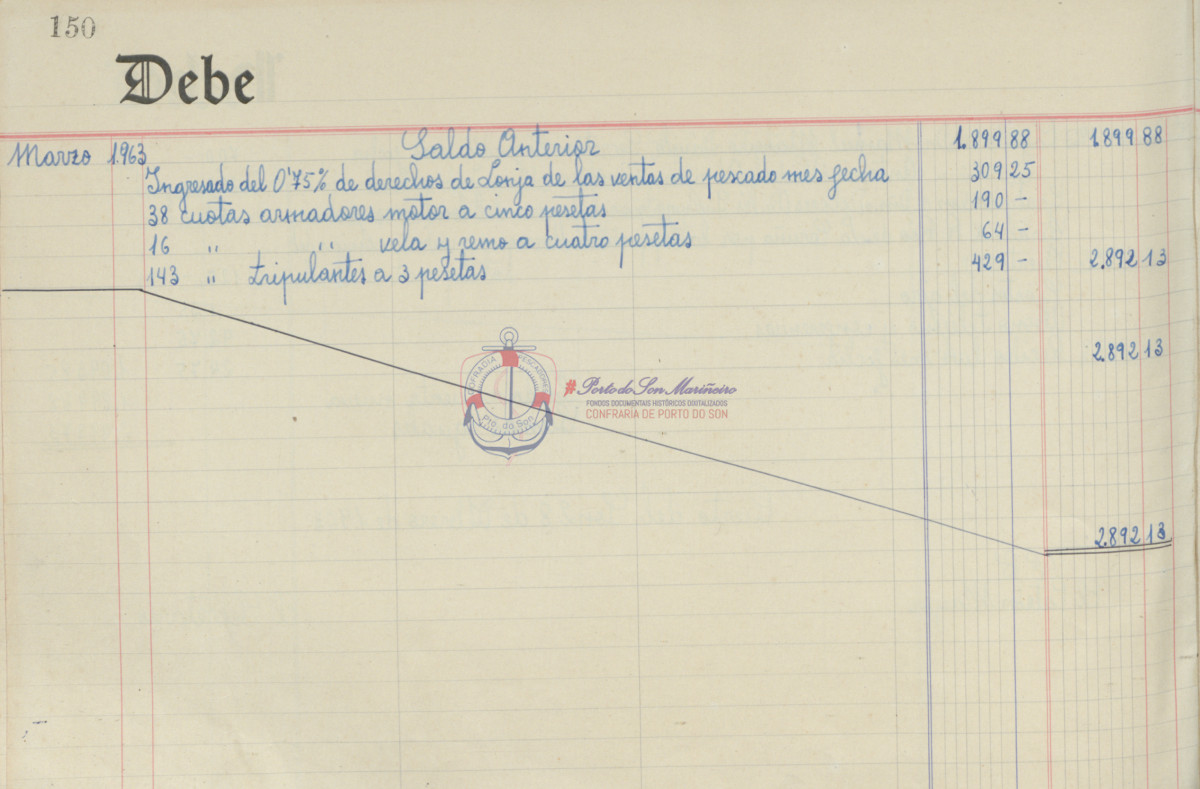 150
Debe
Saldo Anterior 1.899 88 1.899 88
Marzo 1.963
Ingresado del 0'75% de derechos de Lonja de las ventas de pescado mes fecha 309 25
38 cuotas armadores motor a cinco pesetas 190 -
16 " " vela y remo a cuatro pesetas 64 -
143 " tripulantes a 3 pesetas 429 - 2.892 13
2.892 13
COFRADIA PESCADORES
Pto. do Son
#Porto do Son Mariñeiro
FONDOS DOCUMENTAIS HISTÓRICOS DIXITALIZADOS
CONFRARIA DE PORTO DO SON
2.892 13